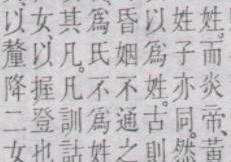 姓。而炎帝、黃
姓子亦同。然
以為姓。古則
昏姻不通之
為氏不為姓
其凡。凡訓詁
女、以握登也
以釐降二女